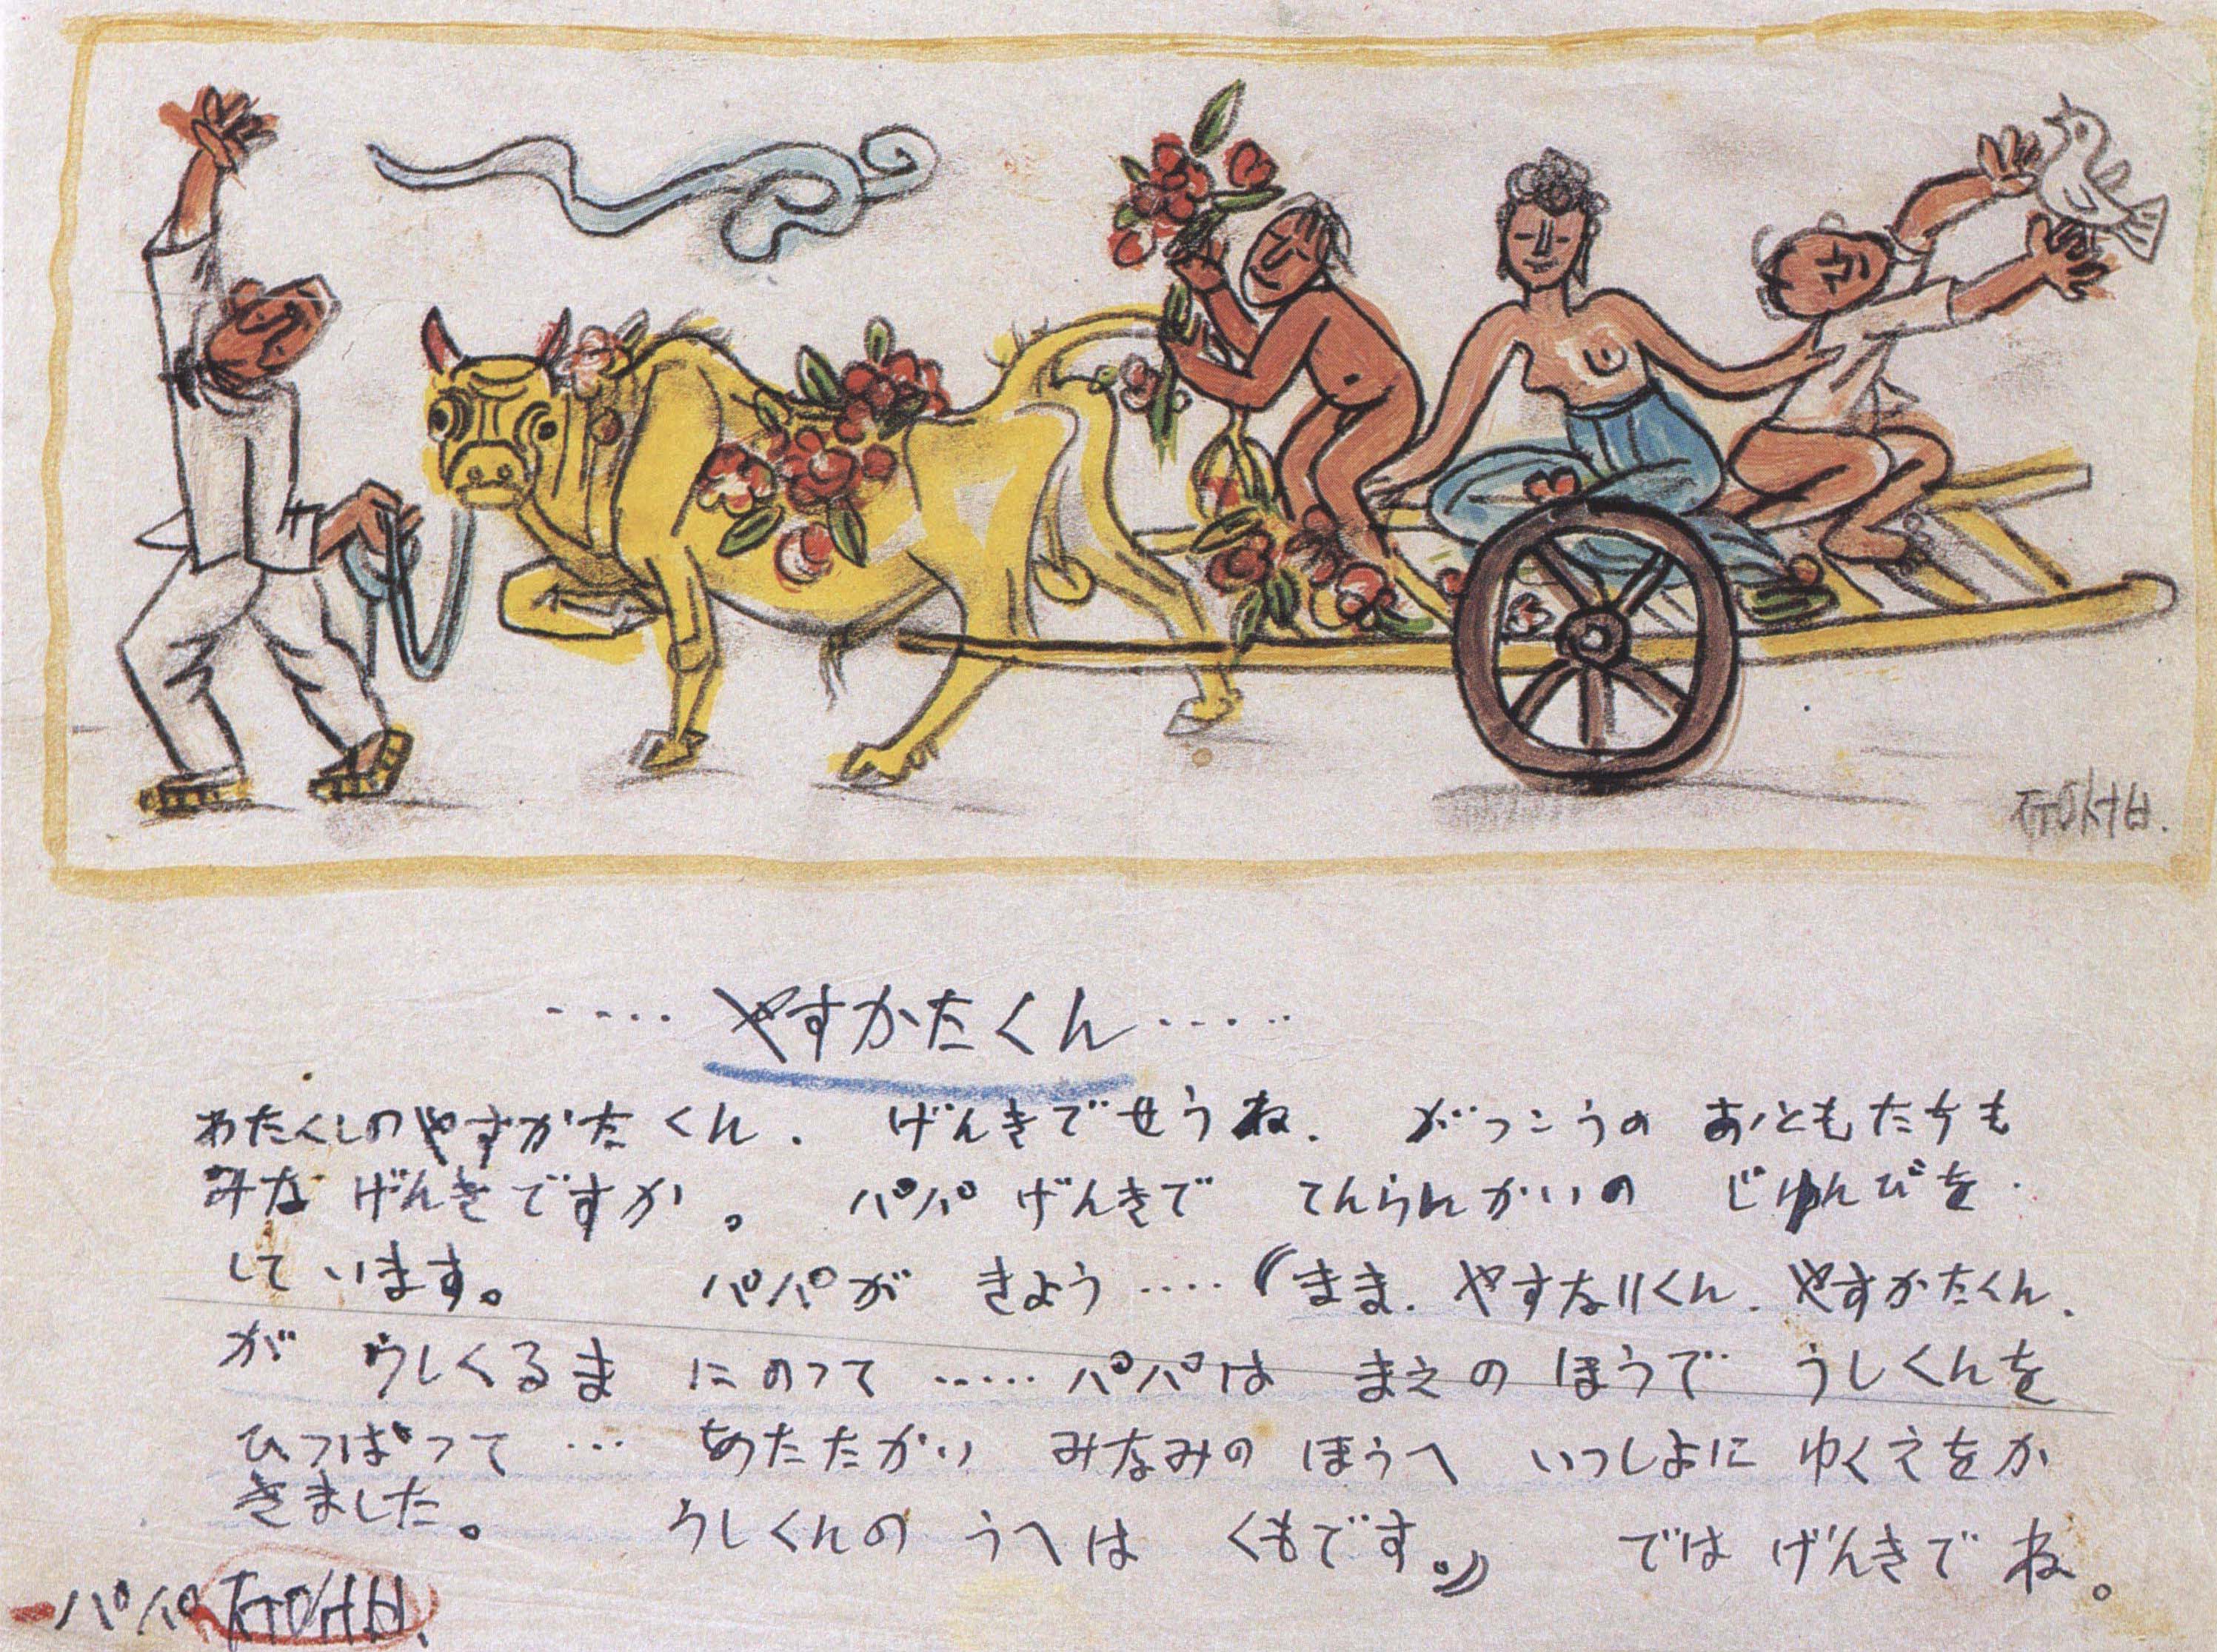 ㅈㅜㅇㅅㅓㅂ.
..... やすかたくん .....
わたくしのやすかたくん. げんきでせうね. がつこうの おともたちも
みな げんきですか。 パパ げんきで てんらんかいの じゆんびを
しています。 パパが きよう ....(まま. やすなりくん. やすかたくん.
が うしくるま にのって ..... パパは まえの ほうで うしくんを
ひつぱつて ... あたたかい みなみの ほうへ いつしよに ゆくえをか
きました。 うしくんの うへは くもです。) では げんきで ね。
パパ ㅈㅜㅇㅅㅓㅂ.